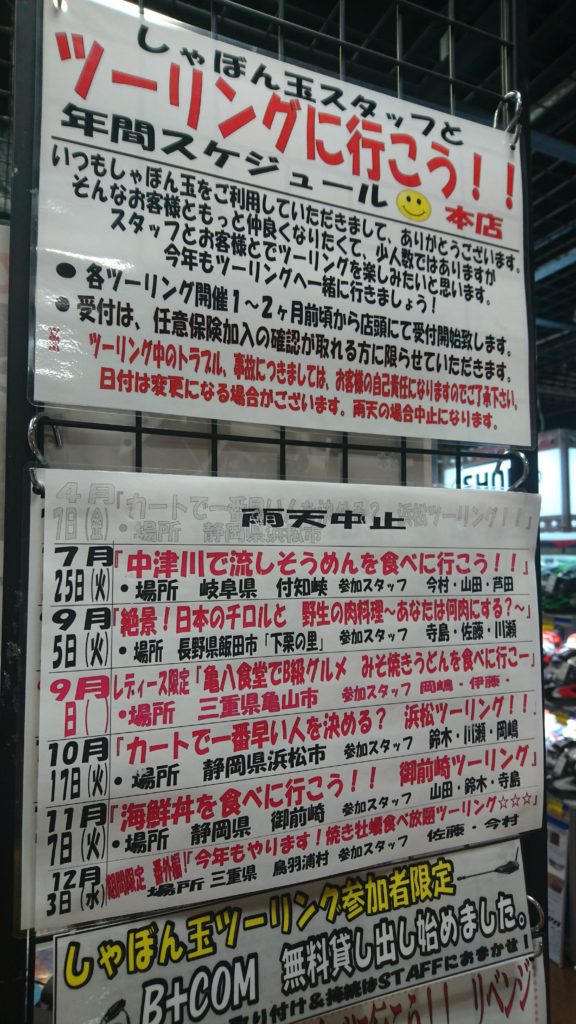 しゃぼん玉スタッフと
ツーリングに行こう!!
年間スケジュール 本店
いつもしゃぼん玉をご利用していただきまして、ありがとうございます。
そんなお客様ともっと仲良くなりたくて、少人数ではありますが
スタッフとお客様とでツーリングを楽しみたいと思います。
今年もツーリングへ一緒に行きましょう!
● 各ツーリング開催1~2ヶ月前頃から店頭にて受付開始致します。
● 受付は、任意保険加入の確認が取れる方に限らせていただきます。
※ ツーリング中のトラブル、事故につきましては、お客様の自己責任になりますのでご了承下さい。
日付は変更になる場合がございます。雨天の場合中止になります。
4月「カートで一番早い人を決める? 浜松ツーリング!!」
雨天中止
7日(金)・場所 静岡県浜松市
7月「中津川で流しそうめんを食べに行こう!!」
25日(火)・場所 岐阜県 付知峡 参加スタッフ 今村・山田・芦田
9月「絶景!日本のチロルと 野生の肉料理~あなたは何肉にする?~」
5日(火)・場所 長野県飯田市「下栗の里」 参加スタッフ 寺島・佐藤・川瀬
9月 レディース限定「亀八食堂でB級グルメ みそ焼きうどんを食べに行こー」
日( )・場所 三重県亀山市 参加スタッフ 岡嶋・伊藤・
10月「カートで一番早い人を決める? 浜松ツーリング!!」
17日(火)・場所 静岡県浜松市 参加スタッフ 鈴木・川瀬・岡嶋
11月「海鮮丼を食べに行こう!! 御前崎ツーリング」
7日(火)・場所 静岡県 御前崎 参加スタッフ 山田・鈴木・寺島
12月 期間限定 番外編「今年もやります!焼き牡蠣食べ放題ツーリング☆☆☆」
3日(水) 場所 三重県 鳥羽浦村 参加スタッフ 佐藤・今村
しゃぼん玉ツーリング参加者限定
B+COM 無料貸し出し始めました。
取り付け&接続はSTAFFにおまかせ!
行こう!! リベンジ